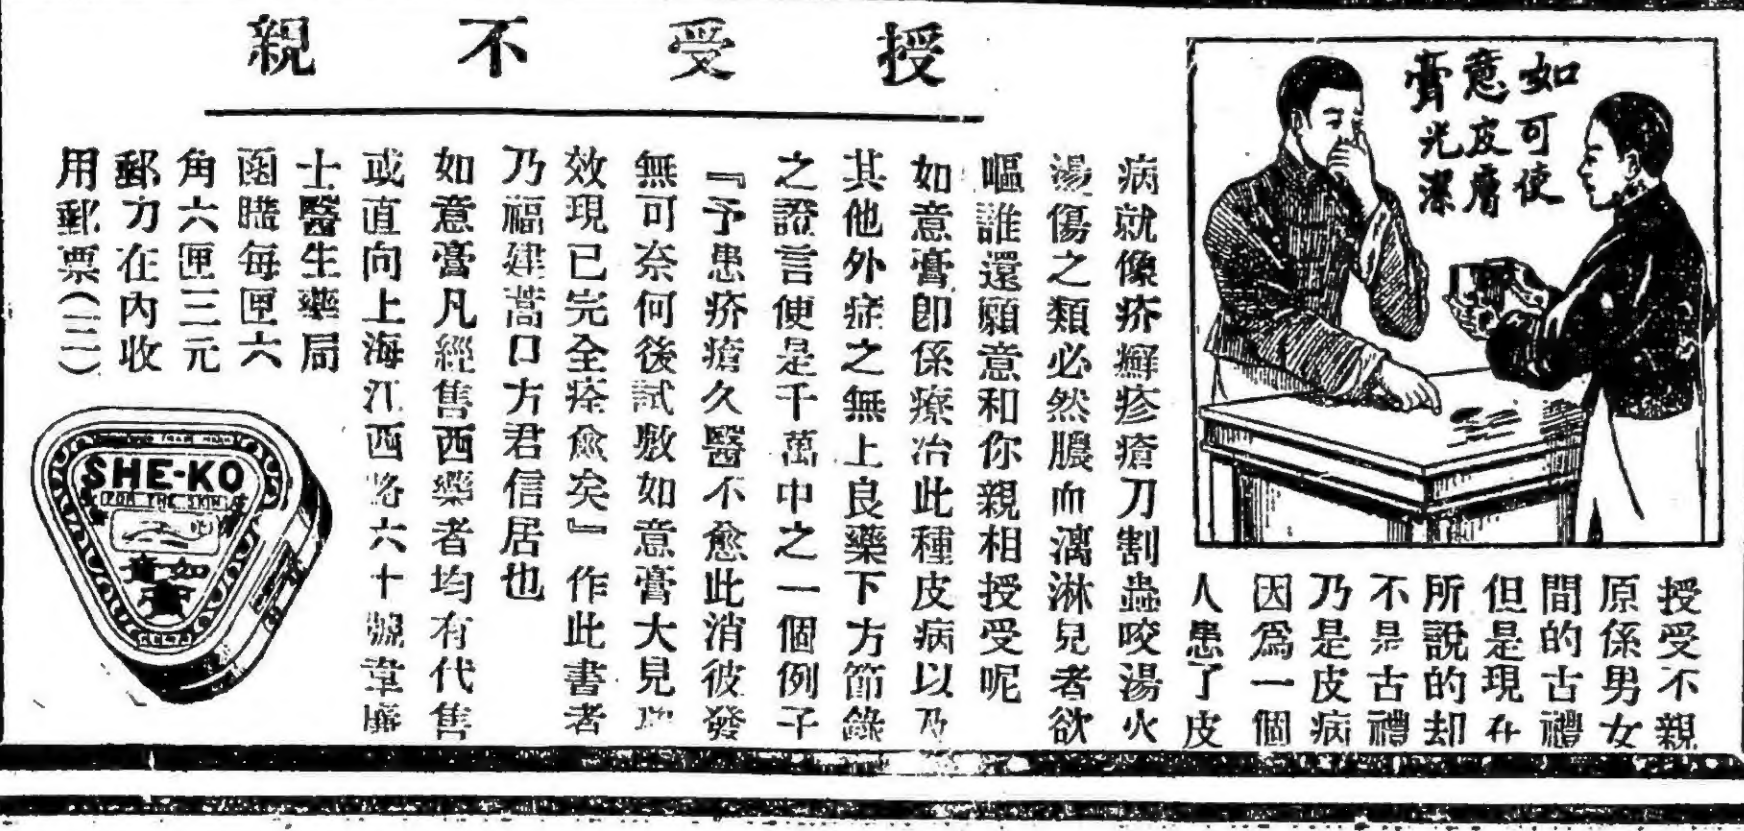 授受不親
如可使
意皮膚
膏光潔
授受不親
原係男女
間的古禮
但是現在
所說的却
不是古禮
乃是皮病
因爲一個
人患了皮
病就像疥癬疹瘡刀割蟲咬湯火
湯傷之類必然膿血漓淋見者欲
嘔誰還願意和你親相授受呢
如意膏卽係療治此種皮病以及
其他外症之無上良藥下方節錄
之證言便是千萬中之一個例子
『予患疥瘡久醫不愈此消彼發
無可奈何後試敷如意膏大見功
效現已完全痊愈矣』作此書者
乃福建蒿口方君信居也
如意膏凡經售西藥者均有代售
或直向上海江西路六十號韋廉
士醫生藥局
函購每匣六
角六匣三元
郵力在內收
用郵票(二二)
SHE-KO
FOR THE SKIN
如意
膏